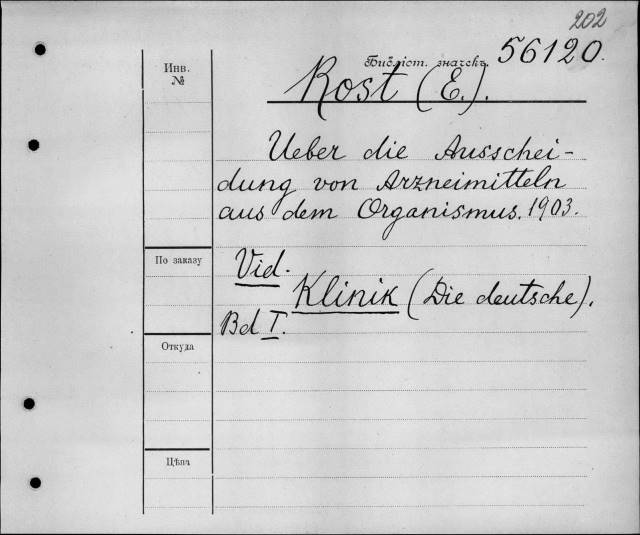 202
Инв.
№
Библіот. значекъ
56120.
Rost (E.).
Ueber die Ausschei-
dung von Arzneimitteln
aus dem Organismus. 1903.
По заказу
Vid.
Klinik (Die deutsche).
Bd I.
Откуда
Цѣна